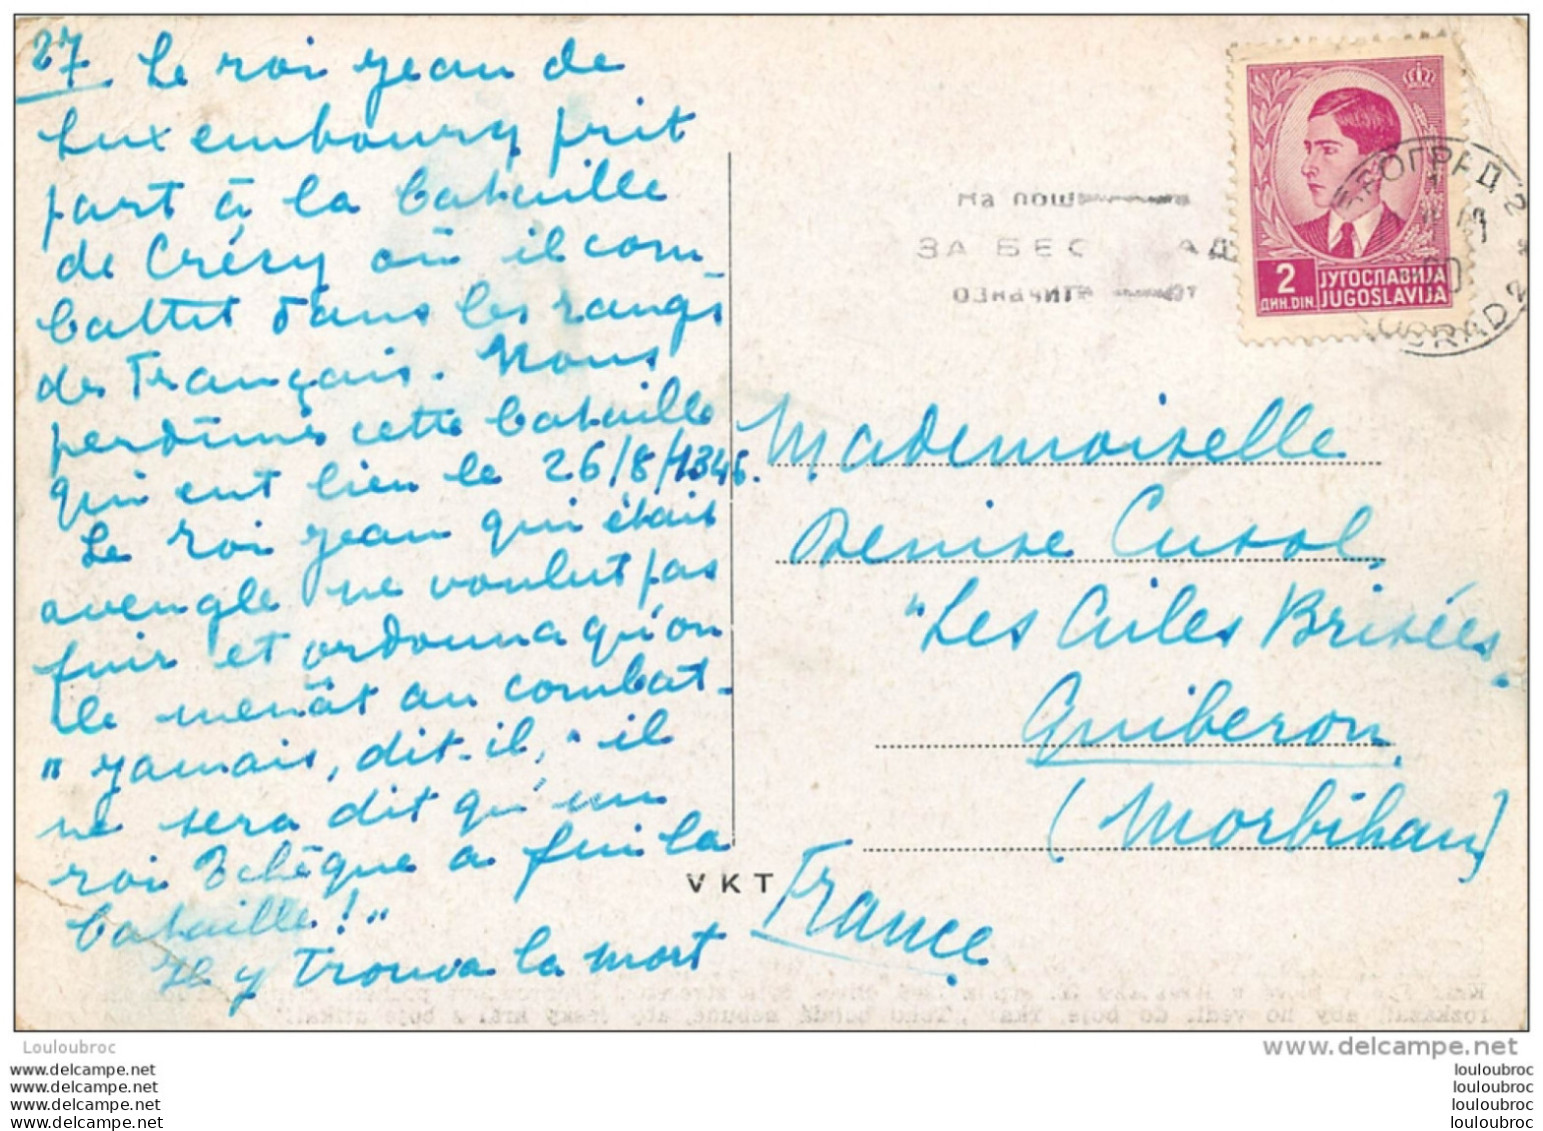 27 Le roi Jean de
Luxembourg prit
part à la bataille
de Crécy où il com_
battit dans les rangs
des Français. Nous
perdîmes cette bataille
qui eut lieu le 26/8/1346.
Le roi Jean qui était
aveugle ne voulut pas
fuir et ordonna qu'on
le menât au combat_
"Jamais, dit-il, il
ne sera dit qu'un
roi Tchèque a fui la
bataille!"
Il y trouva la mort
ЗА БЕО
2
ДИН. DIN.
ЈУГОСЛАВИЈА
JUGOSLAVIJA
БЕОГРАД 2
Mademoiselle
Denise Cusol
"Les Ailes Brisées"
Quiberon
(Morbihan)
France
VKT
rozkázal, aby ho vedl do boje, řka: „Toho bohdá nebude, aby český král z boje utíkal!"
Louloubroc
www.delcampe.net
www.delcampe.net
www.delcampe.net
www.delcampe.net
delcampe.net
louloubroc
louloubroc
louloubroc
louloubroc